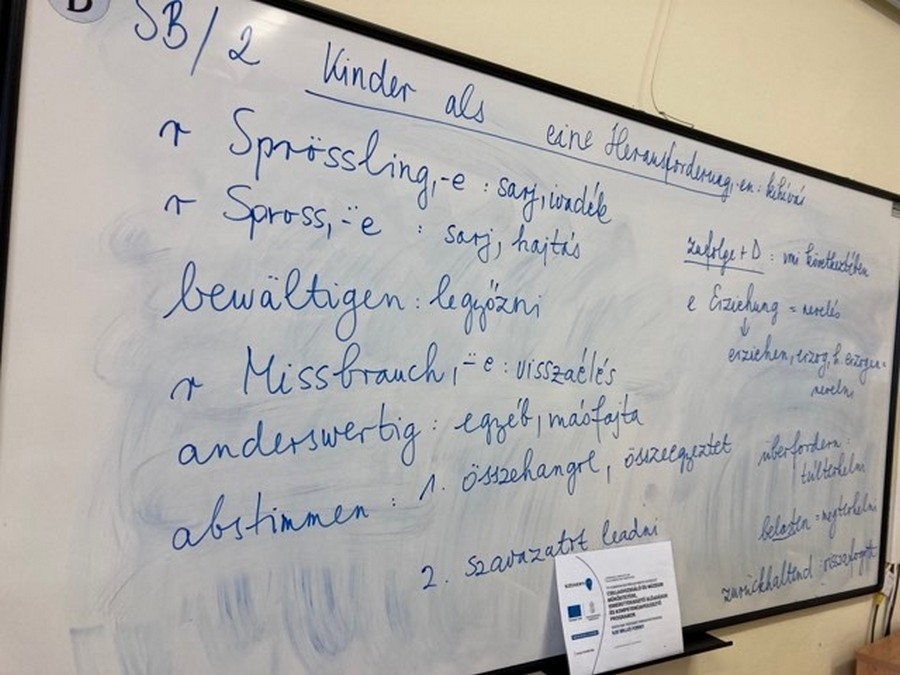 B
SB/2 Kinder als eine Herausforderung,-en: kihívás
r Sprössling,-e : sarj, ivadék
r Spross,-̈e : sarj, hajtás
bewältigen : legyőzni
r Missbrauch,-̈e : visszaélés
anderswertig : egyéb, másfajta
abstimmen : 1. összehangol, összeegyeztet
2. szavazatot leadni
zufolge + D : vmi következtében
e Erziehung = nevelés
↓
erziehen, erzog, h. erzogen =
nevelni
überfordern :
túlterhelni
belasten = megterhelni
zurückhaltend : visszafogott
SZÉCHENYI
CSALÁDIGAZOLÓ